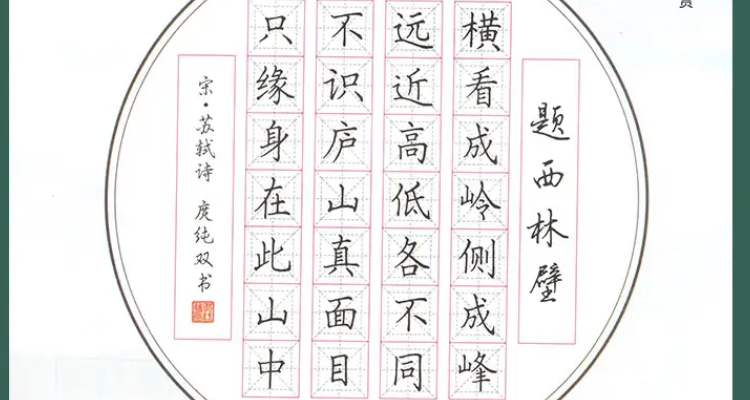 题西林壁
横看成岭侧成峰
远近高低各不同
不识庐山真面目
只缘身在此山中
宋·苏轼诗 庹纯双书